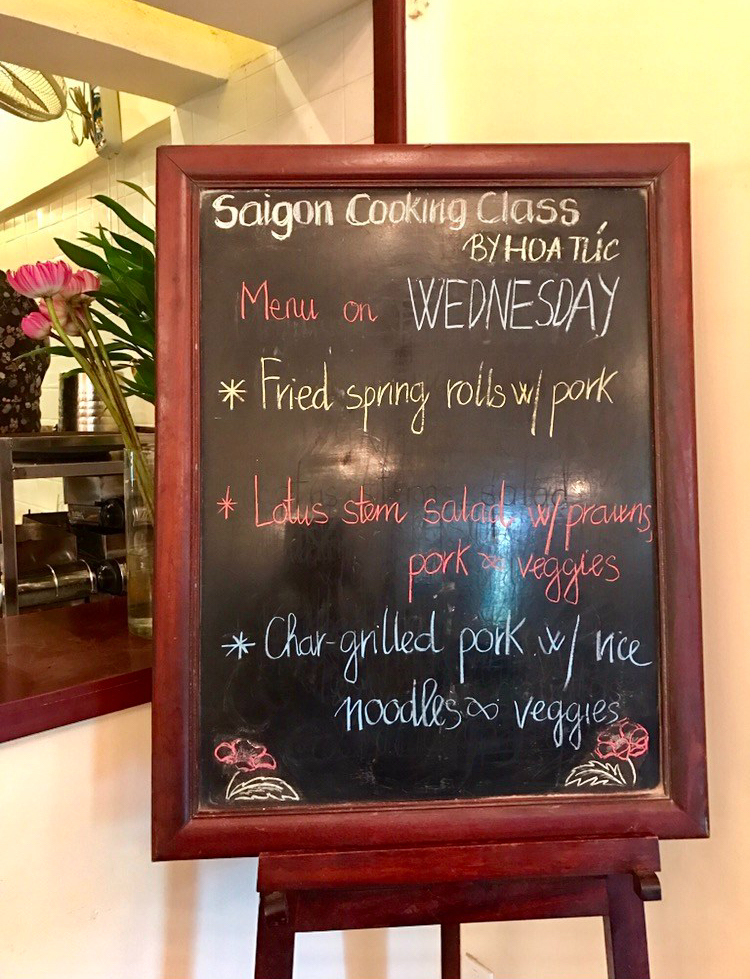 Saigon Cooking Class
BY HOA TÚC
Menu on WEDNESDAY
* Fried spring rolls w/ pork
* Lotus stem salad w/ prawns,
pork & veggies
* Char-grilled pork w/ rice
noodles & veggies